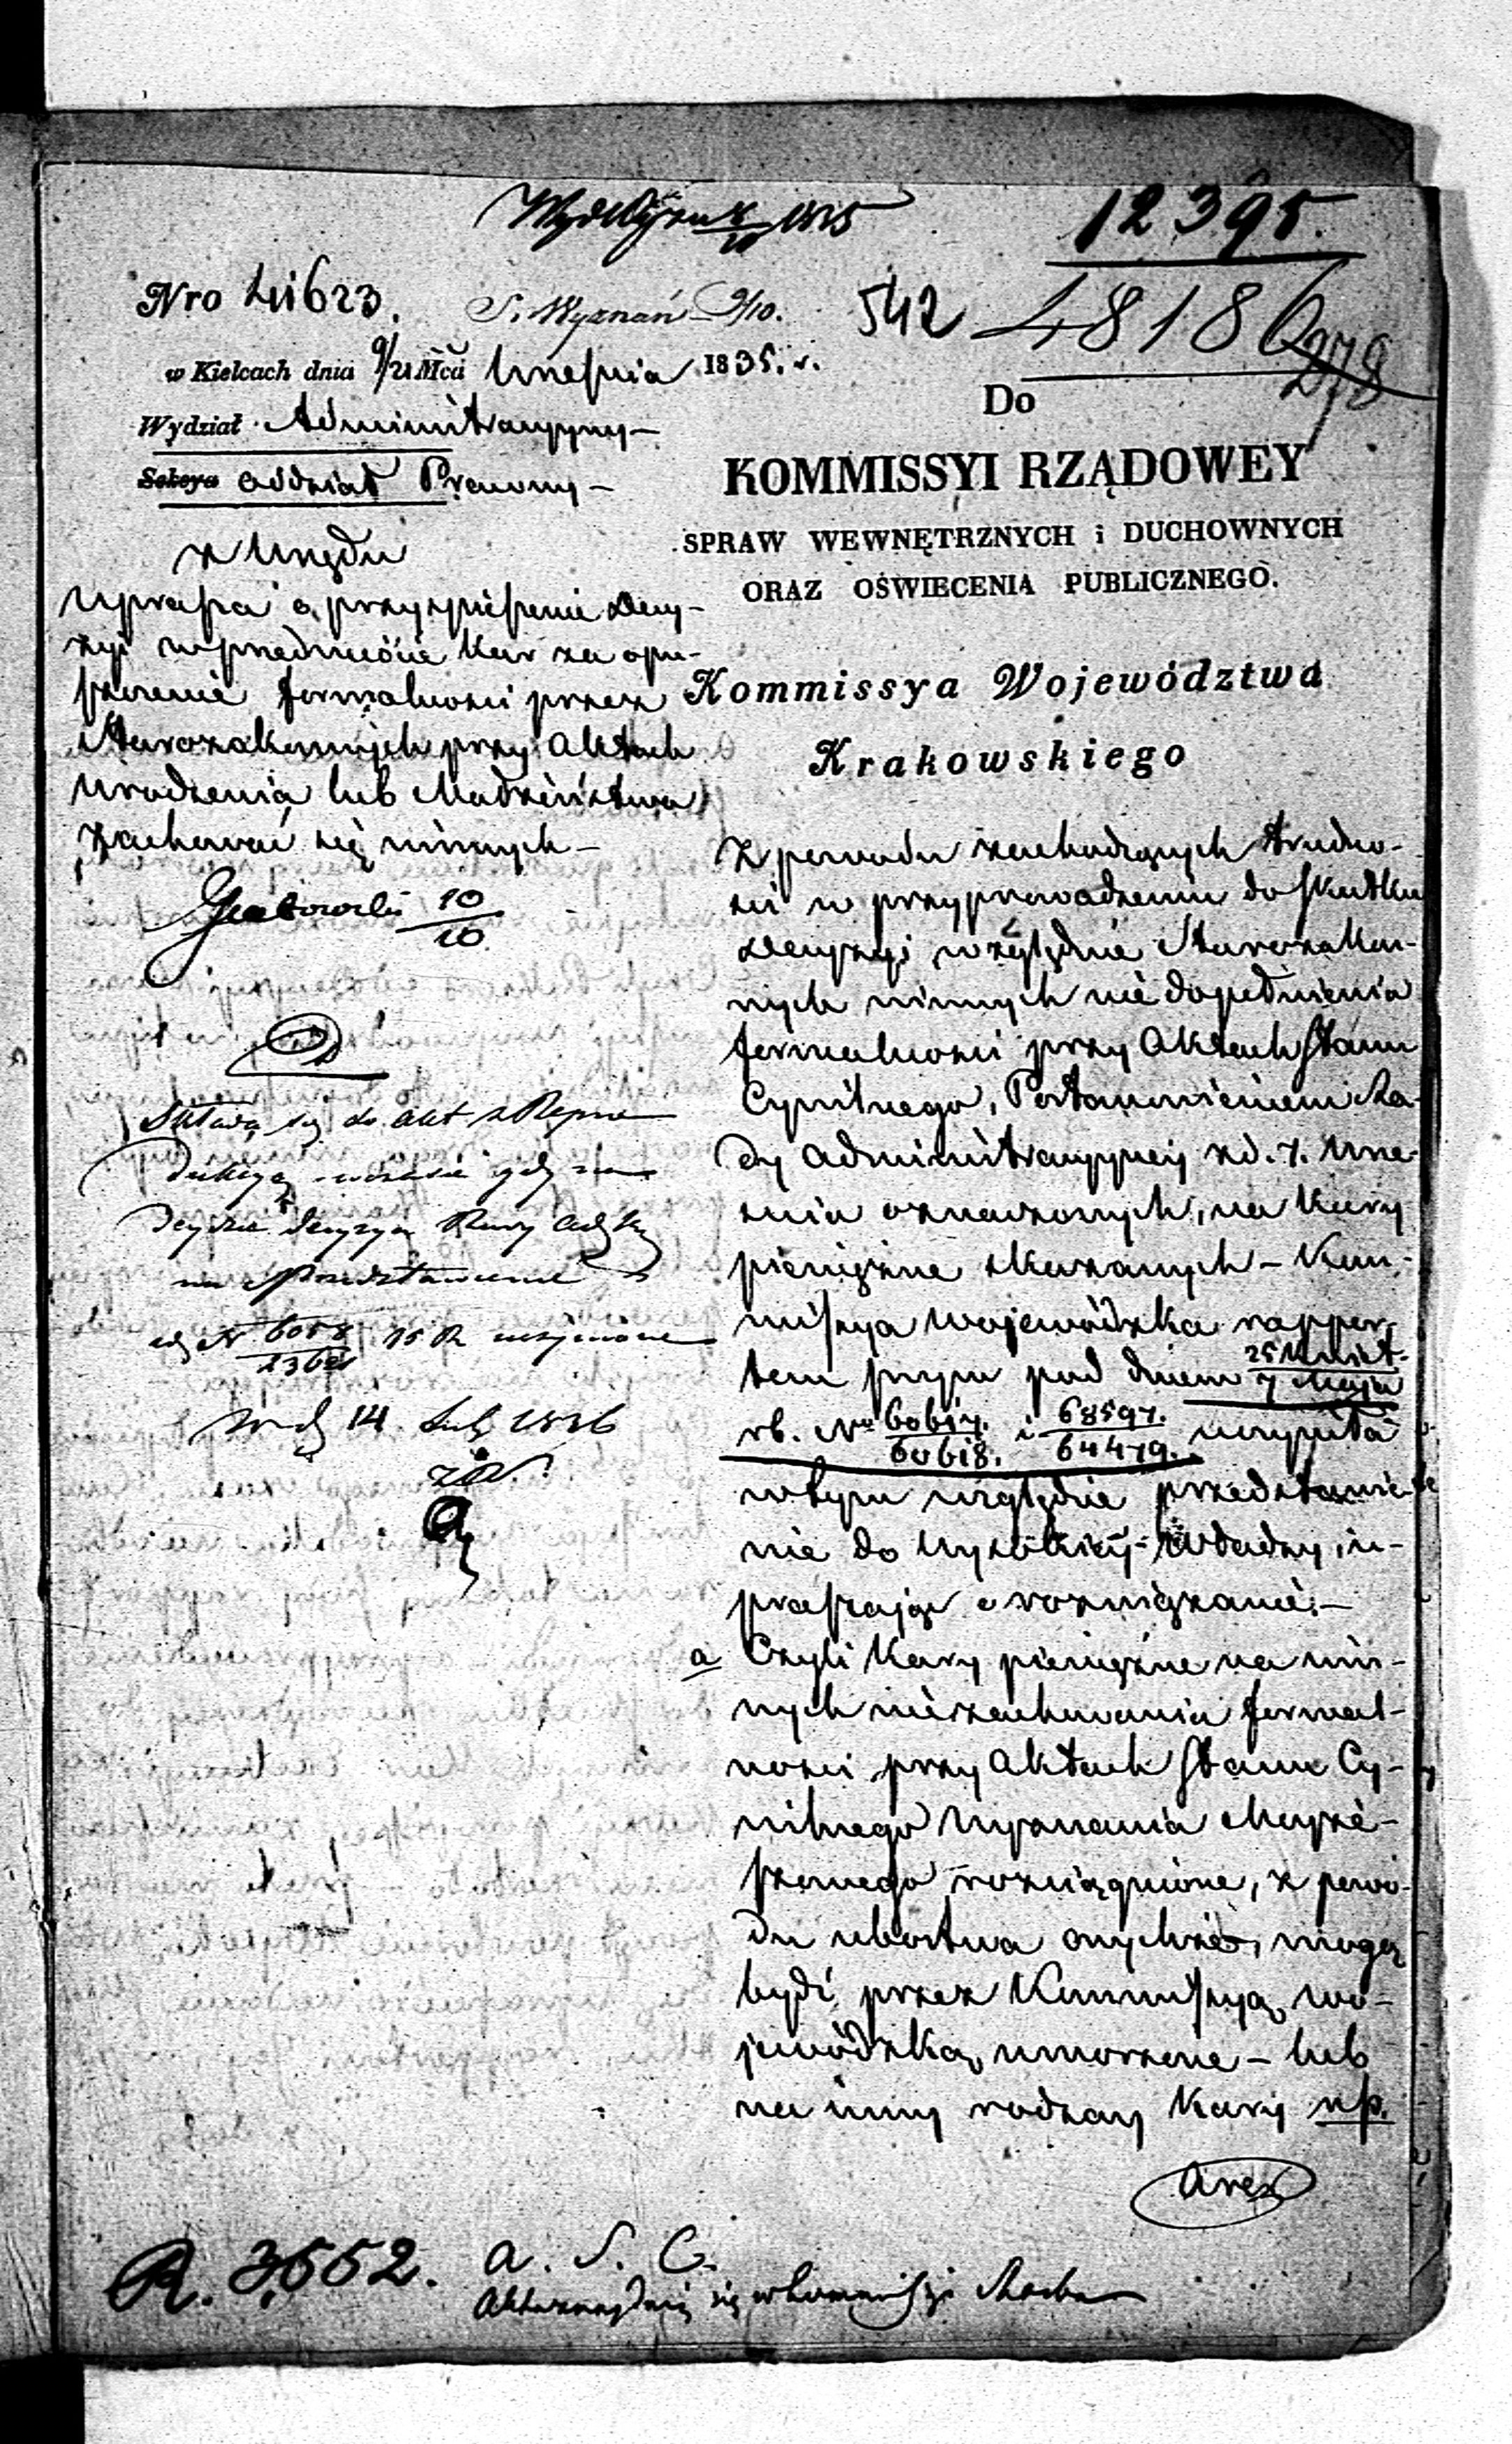 12395.
Nro 41623.
S. Wyznań 9/10.
542
48186
278
w Kielcach dnia 9/21 Mca Września 1835. r.
Wydział Administracyjny —
Sekcya Oddział Prawny —
Do
KOMMISSYI RZĄDOWEY
SPRAW WEWNĘTRZNYCH i DUCHOWNYCH
ORAZ OŚWIECENIA PUBLICZNEGO.
Kommissya Województwa
Krakowskiego
z Urzędu
Uprasza o przyspieszenie decy-
zyi w przedmiocie kar za opu-
szczenie formalności przez
Starozakonnych przy Aktach
Urodzenia lub Małżeństwa
zachować się winnych —
10/10
Składa się do akt z
decyzya Rady
na przedstawienie
14 1836
Z powodu zachodzących trudno-
ści w przyprowadzeniu do skutku
decyzyi względnie Starozakon-
nych winnych niedopełnienia
formalności przy Aktach Stanu
Cywilnego, Postanowieniem Ra-
dy Administracyjney z d. 7. Wrze-
śnia oznaczonych, na kary
pieniężne skazanych — Kom-
missya Wojewódzka rappor-
tem swym pod dniem 25 Kwiet./7 Maja
rb. No 60617./60618. i 68597./64479. uczyniła
w tym względzie przedstawie-
nie do Wysokiey Władzy, u-
praszając o rozwiązanie: —
a Czyli kary pieniężne na win-
nych niezachowania formal-
ności przy Aktach Stanu Cy-
wilnego Wyznania Moyże-
szowego rozciągnione, z powo-
du ubóstwa onychże, mogą
bydź przez Kommissyą Wo-
jewódzką umorzone — lub
na inny rodzay kary np.
Aresz
R. 3552.
A. S. C.